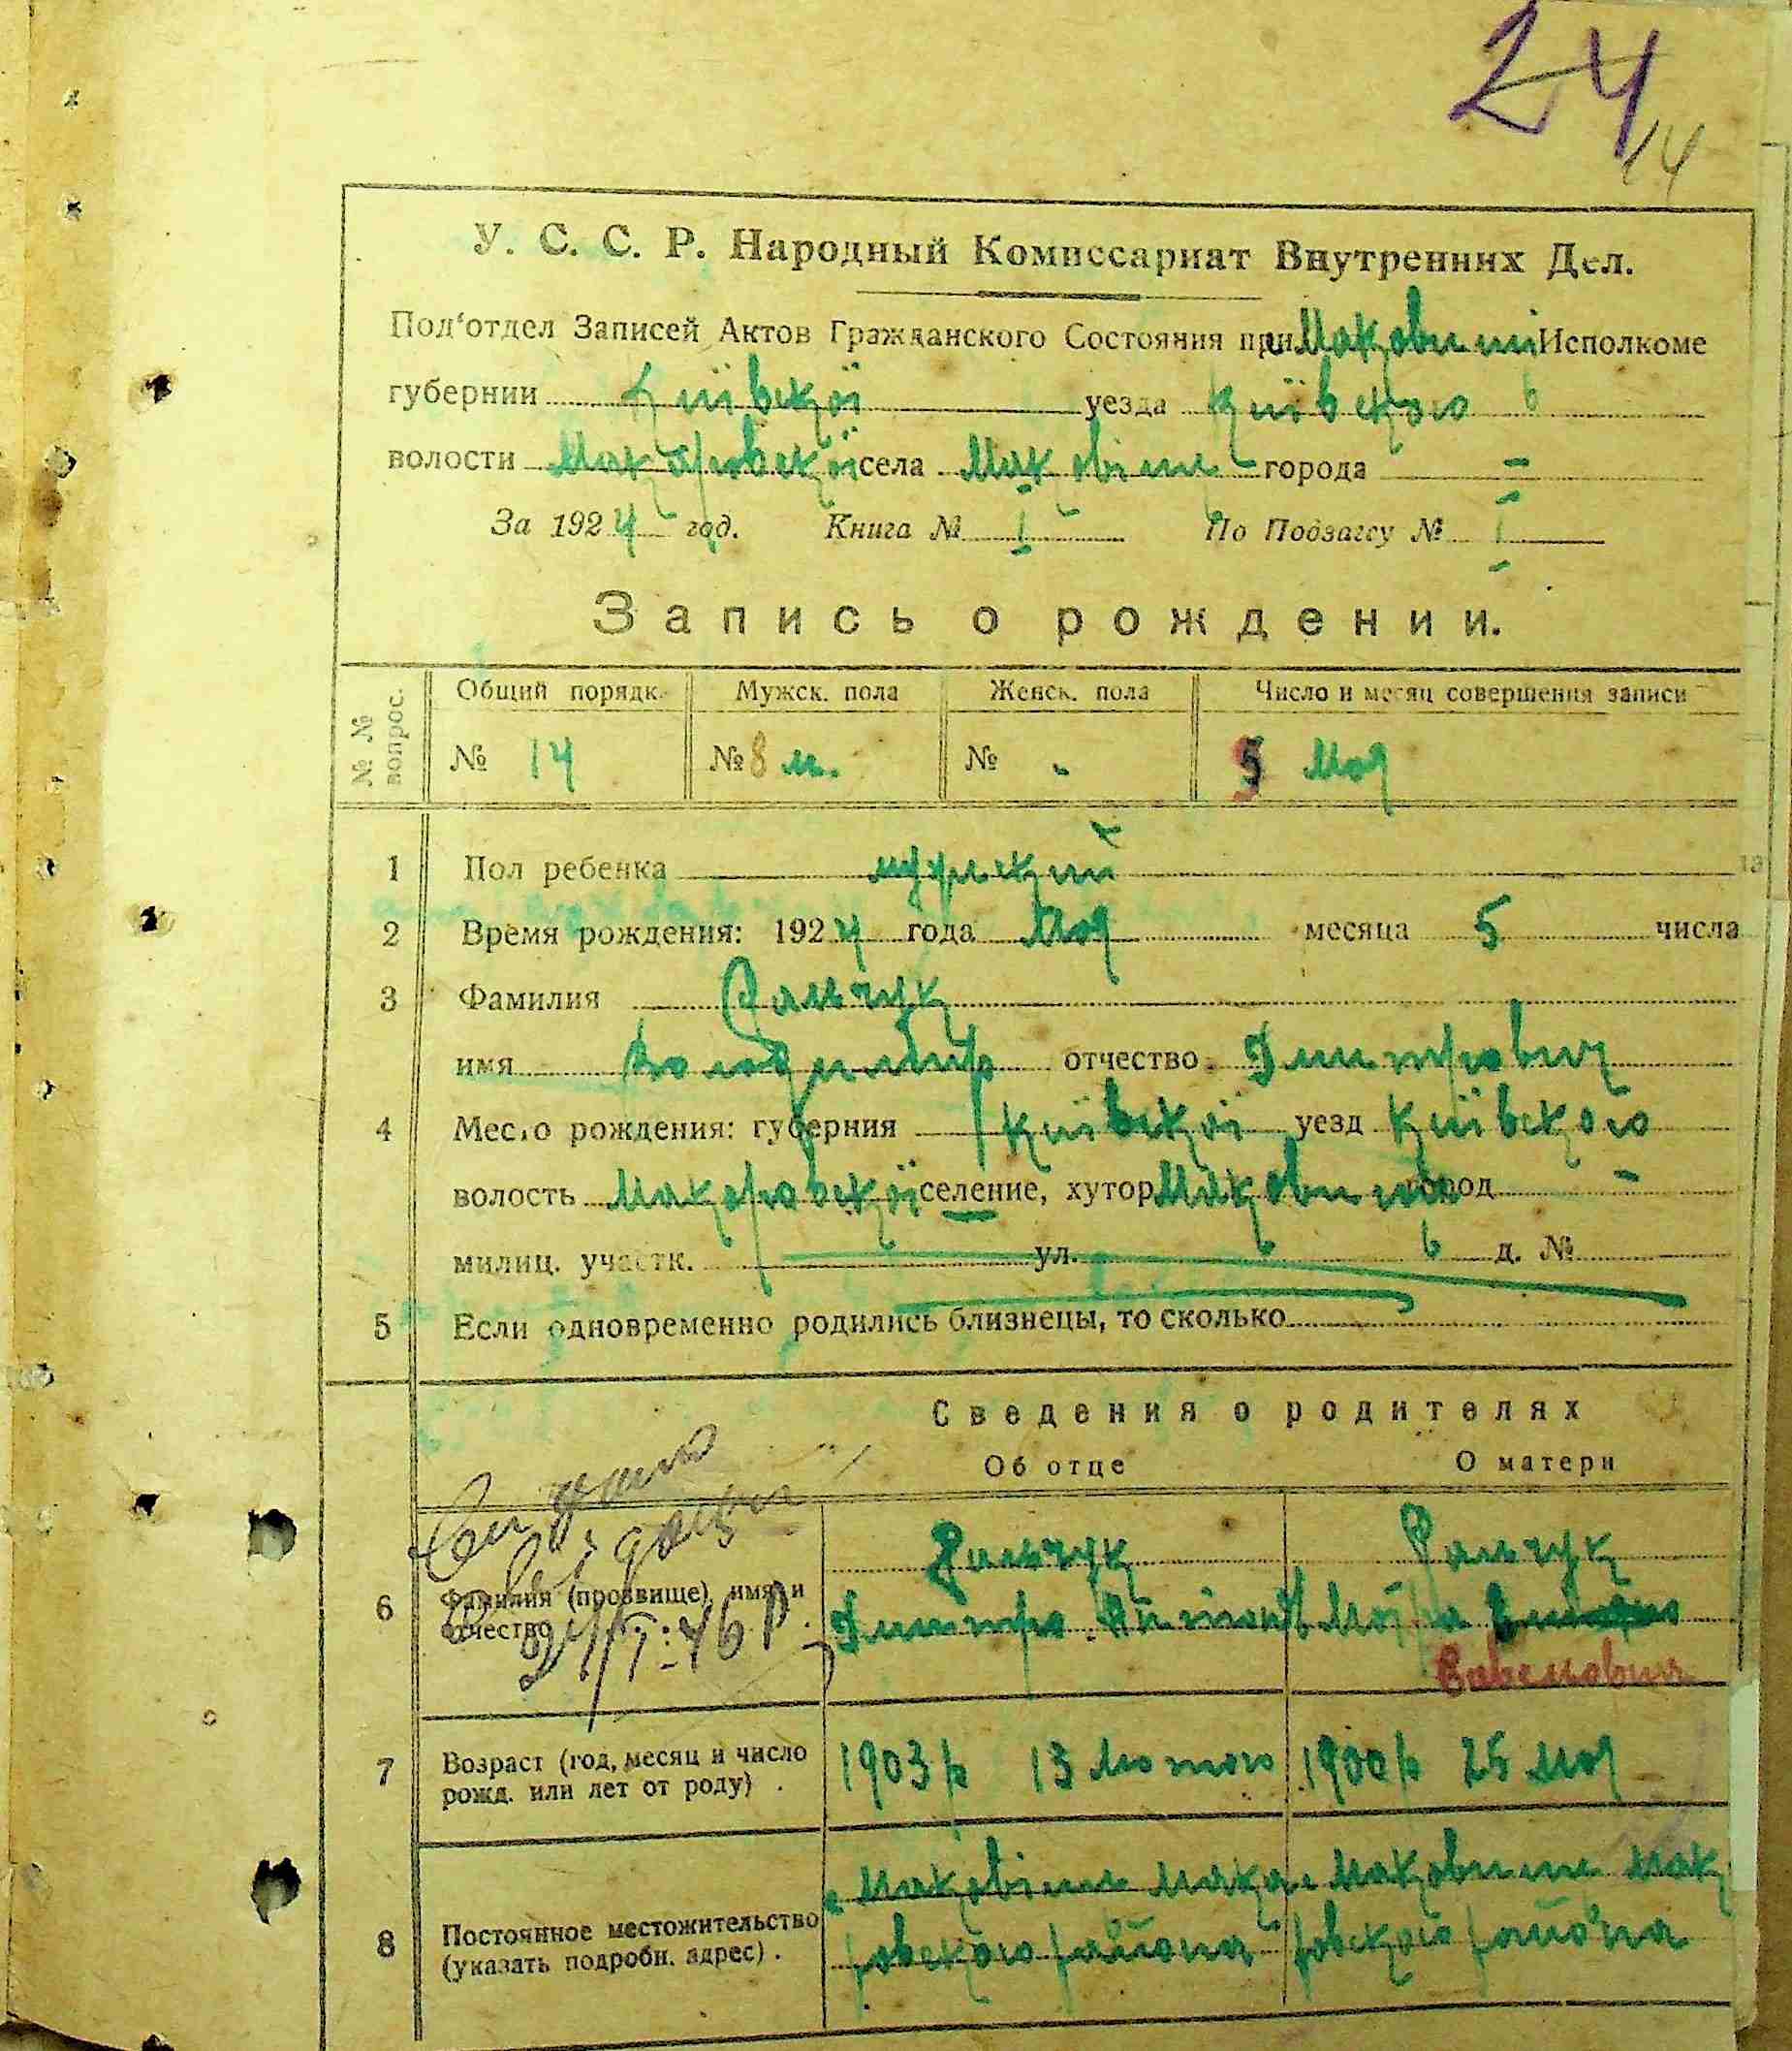 24
14
У. С. С. Р. Народный Комиссариат Внутренних Дел.
Под'отдел Записей Актов Гражданского Состояния при Исполкоме
губернии Київської уезда Київського
волости Макарівської села Маковище города -
За 1924 год. Книга № I По Подзагсу № I
Запись о рождении.
№ № вопрос. Общий порядк. Мужск. пола Женск. пола Число и месяц совершения записи
№ 14 № 8 м. № 5 Мая
1 Пол ребенка мужский
2 Время рождения: 1924 года Мая месяца 5 числа
3 Фамилия Ральчук
имя Володимир отчество Дмитрович
4 Место рождения: губерния Київської уезд Київського
волость Макаровської селение, хутор город -
милиц. участк. ул. д. №
5 Если одновременно родились близнецы, то сколько
Сведения о родителях
Об отце О матери
6 Фамилия (прозвище), имя и отчество Ральчук Ральчук
Дмитро
24/I-46 р.
7 Возраст (год, месяц и число рожд. или лет от роду) 1903 р 13 лютого 1900 р 25 мая
8 Постоянное местожительство (указать подробн. адрес) с Маковище Мака с Маковище Мак
ровского района ровского района